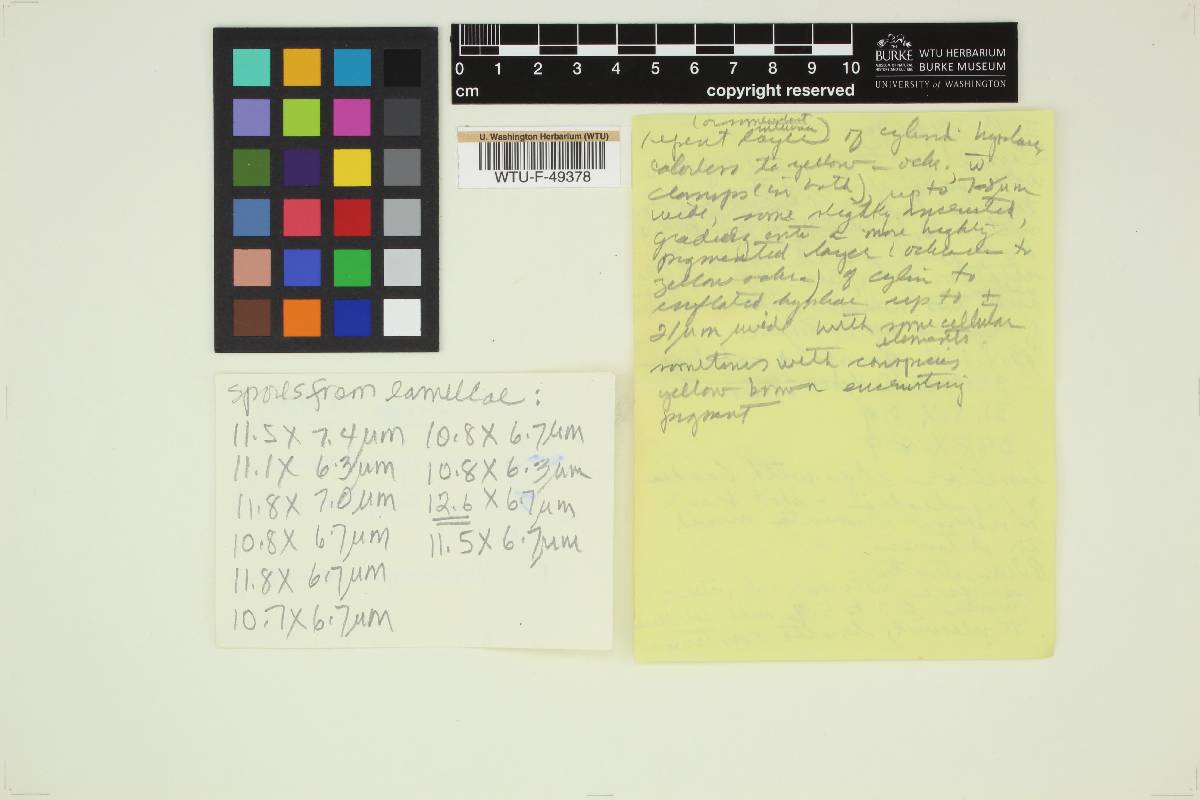 0 1 2 3 4 5 6 7 8 9 10
cm
copyright reserved
THE
BURKE
MUSEUM OF NATURAL
HISTORY AND CULTURE
WTU HERBARIUM
BURKE MUSEUM
UNIVERSITY of WASHINGTON
U. Washington Herbarium (WTU)
WTU-F-49378
(or somewhat
repent layer) of cylind. hyphae,
colorless to yellow-ochr. w
clamps (in both), up to 7-8 µm
wide, some slightly incrusted,
grading onto a more highly
pigmented layer (ochrac to
yellow ochre) of cylin to
inflated hyphae up to ±
21 µm wide with some cellular
elements
sometimes with conspicuus
yellow brown encrusting
pigment
spores from lamellae:
11.5 X 7.4 µm
11.1 X 6.3 µm
11.8 X 7.0 µm
10.8 X 6.7 µm
11.8 X 6.7 µm
10.7 X 6.7 µm
10.8 X 6.7 µm
10.8 X 6.3 µm
12.6 X 6.7 µm
11.5 X 6.7 µm